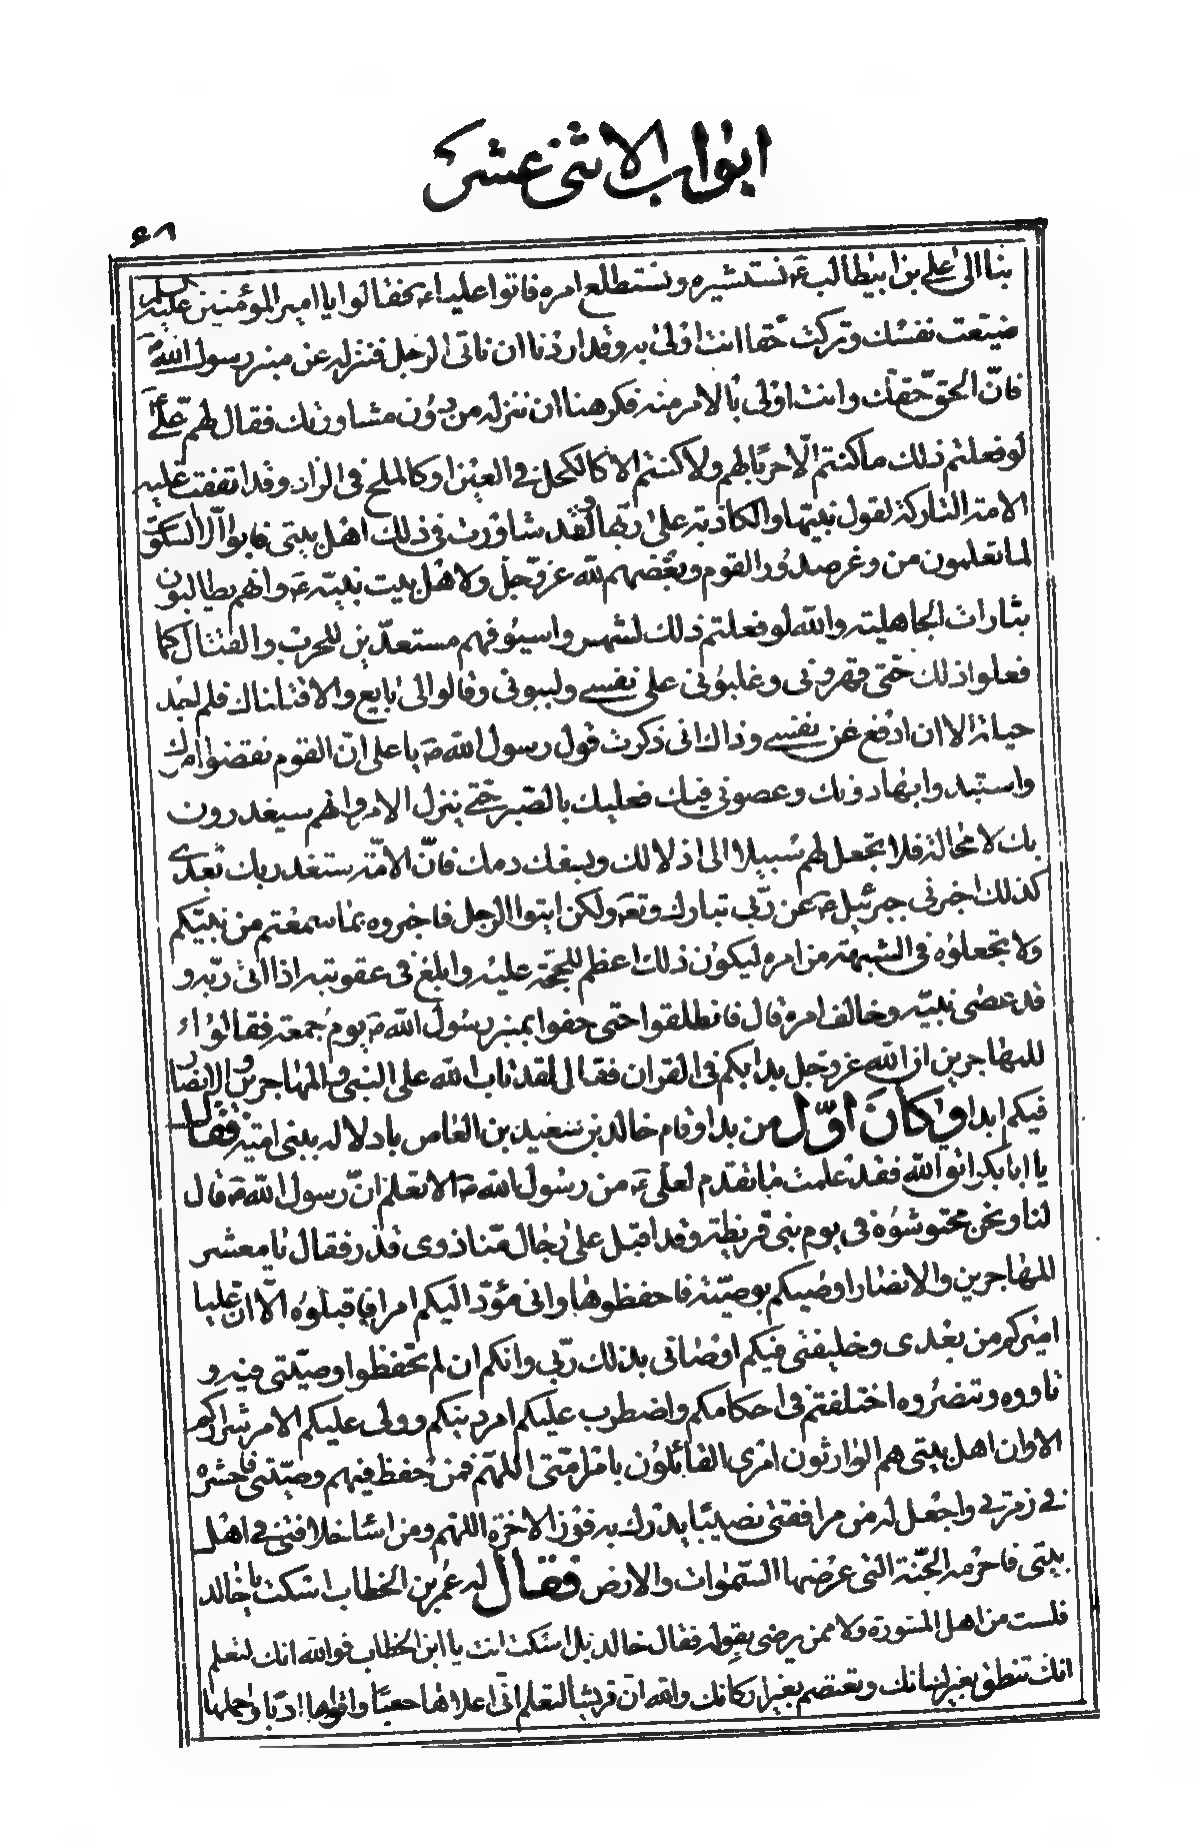 ابواب الاثنى عشر
٤٨
بنا الى علي بن ابيطالب ع نستشيره ونستطلع امره فاتوا عليا ع فقالوا يا امير المؤمنين عليه السلم
ضيعت نفسك وتركت حقا انت اولى به وقد اردنا ان ناتى الرجل فننزله عن منبر رسول الله ص
فان الحق حقك وانت اولى بالامر منه فكرهنا ان ننزله من دون مشاورتك فقال لهم علي ع
لو فعلتم ذلك ما كنتم الا حربا لهم ولا كنتم الا كالكحل في العين او كالملح في الزاد وقد اتفقت عليه
الامة التاركة لقول نبيها والكاذبة على ربها ولقد شاورت في ذلك اهل بيتي فابوا الا السكوت
لما تعلمون من وغر صدور القوم وبغضهم لله عز وجل ولاهل بيت نبيه ع وانهم يطالبون
بثارات الجاهلية والله لو فعلتم ذلك لشهروا سيوفهم مستعدين للحرب والقتال كما
فعلوا ذلك حتى قهروني وغلبوني على نفسي ولببوني وقالوا لي بايع والا قتلناك فلم اجد
حيلة الا ان ادفع عن نفسي وذاك اني ذكرت قول رسول الله ص يا علي ان القوم نقضوا امرك
واستبدوا بها دونك وعصوني فيك فعليك بالصبر حتى ينزل الامر وانهم سيغدرون
بك لا محالة فلا تجعل لهم سبيلا الى اذلالك وسفك دمك فان الامة ستغدر بك بعدي
كذلك اخبرني جبرئيل ع عن ربي تبارك وتعه ولكن ايتوا الرجل فاخبروه بما سمعتم من نبيكم
ولا تجعلوه في الشبهة من امره ليكون ذلك اعظم للحجة عليه وابلغ في عقوبته اذا اتى ربه و
قد عصى نبيه وخالف امره قال فانطلقوا حتى حفوا بمنبر رسول الله ص يوم جمعة فقالوا
للمهاجرين ان الله عز وجل بدا بكم في القران فقال لقد تاب الله على النبي والمهاجرين والانصار
فيكم بدا وكان اول من بدا وقام خالد بن سعيد بن العاص بادلاله ببني امية فقال
يا ابا بكر اتق الله فقد علمت ما تقدم لعلي ع من رسول الله ص الا تعلم ان رسول الله ص قال
لنا ونحن محتوشوه في يوم بني قريظة وقد اقبل على رجال منا ذوى قدر فقال يا معشر
المهاجرين والانصار اوصيكم بوصية فاحفظوها واني مؤد اليكم امرا فاقبلوه الا ان عليا
اميركم من بعدي وخليفتي فيكم اوصاني بذلك ربي وانكم ان لم تحفظوا وصيتي فيه و
تاووه وتنصروه اختلفتم في احكامكم واضطرب عليكم امر دينكم وولى عليكم الامر شراركم
الا وان اهل بيتي هم الوارثون امري القائلون بامر امتي اللهم فمن حفظ فيهم وصيتي فاحشره
في زمرتي واجعل له من مرافقتي نصيبا يدرك به فوز الاخرة اللهم ومن اساء خلافتي في اهل
بيتي فاحرمه الجنة التي عرضها السموات والارض فقال له عمر بن الخطاب اسكت يا خالد
فلست من اهل المشورة ولا ممن يرضى بقوله فقال خالد بل اسكت انت يا ابن الخطاب فوالله انك لتعلم
انك تنطق بغير لسانك وتعتصم بغير اركانك والله ان قريشا لتعلم اني اعلاها حسبا واقواها ادبا واجملها